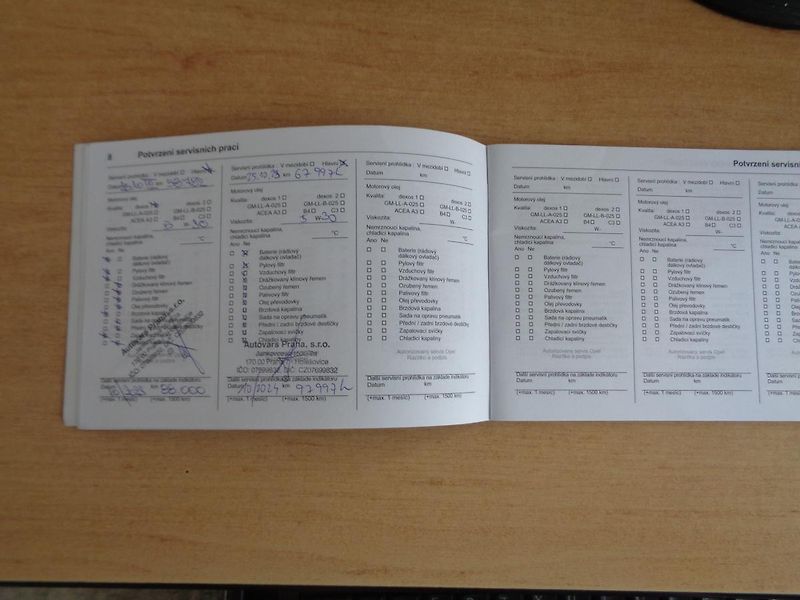 8 Potvrzení servisních prací
Servisní prohlídka : V mezidobí Hlavní
Datum km
Motorový olej
Kvalita: dexos 1 dexos 2
GM-LL-A-025 GM-LL-B-025
ACEA A3 B4 C3
Viskozita: W-
Nemrznoucí kapalina,
chladicí kapalina °C
Ano Ne
Baterie (rádiový
dálkový ovladač)
Pylový filtr
Vzduchový filtr
Palivový filtr
Olej převodovky
Brzdová kapalina
Další servisní prohlídka na základě indikátoru
88.000
(+max. 1 měsíc) (+max. 1500 km)
Servisní prohlídka : V mezidobí Hlavní
Datum km 67997
Motorový olej
Kvalita: dexos 1 dexos 2
GM-LL-A-025 GM-LL-B-025
ACEA A3 B4 C3
Viskozita: 5 W- 30
Nemrznoucí kapalina,
chladicí kapalina °C
Ano Ne
Baterie (rádiový
dálkový ovladač)
Pylový filtr
Vzduchový filtr
Drážkovaný klínový řemen
Ozubený řemen
Palivový filtr
Olej převodovky
Brzdová kapalina
Sada na opravu pneumatik
Přední / zadní brzdové destičky
Zapalovací svíčky
Chladicí kapaliny
Autovars Praha, s.r.o.
170 00 Praha 7, Holešovice
Další servisní prohlídka na základě indikátoru
Datum 10/2024 km 97997
(+max. 1 měsíc) (+max. 1500 km)
Servisní prohlídka : V mezidobí Hlavní
Datum km
Motorový olej
Kvalita: dexos 1 dexos 2
GM-LL-A-025 GM-LL-B-025
ACEA A3 B4 C3
Viskozita: W-
Nemrznoucí kapalina,
chladicí kapalina °C
Ano Ne
Baterie (rádiový
dálkový ovladač)
Pylový filtr
Vzduchový filtr
Drážkovaný klínový řemen
Ozubený řemen
Palivový filtr
Olej převodovky
Brzdová kapalina
Sada na opravu pneumatik
Přední / zadní brzdové destičky
Zapalovací svíčky
Chladicí kapaliny
Autorizovaný servis Opel
Razítko a podpis
Další servisní prohlídka na základě indikátoru
Datum km
(+max. 1 měsíc) (+max. 1500 km)
Potvrzení servisní
Servisní prohlídka : V mezidobí Hlavní
Datum km
Motorový olej
Kvalita: dexos 1 dexos 2
GM-LL-A-025 GM-LL-B-025
ACEA A3 B4 C3
Viskozita: W-
Nemrznoucí kapalina,
chladicí kapalina °C
Ano Ne
Baterie (rádiový
dálkový ovladač)
Pylový filtr
Vzduchový filtr
Drážkovaný klínový řemen
Ozubený řemen
Palivový filtr
Olej převodovky
Brzdová kapalina
Sada na opravu pneumatik
Přední / zadní brzdové destičky
Zapalovací svíčky
Chladicí kapaliny
Autorizovaný servis Opel
Razítko a podpis
Další servisní prohlídka na základě indikátoru
Datum km
(+max. 1 měsíc) (+max. 1500 km)
Servisní prohlídka : V mezidobí Hlavní
Datum km
Motorový olej
Kvalita: dexos 1 dexos 2
GM-LL-A-025 GM-LL-B-025
ACEA A3 B4 C3
Viskozita: W-
Nemrznoucí kapalina,
chladicí kapalina °C
Ano Ne
Baterie (rádiový
dálkový ovladač)
Pylový filtr
Vzduchový filtr
Drážkovaný klínový řemen
Ozubený řemen
Palivový filtr
Olej převodovky
Brzdová kapalina
Sada na opravu pneumatik
Přední / zadní brzdové destičky
Zapalovací svíčky
Chladicí kapaliny
Autorizovaný servis Opel
Razítko a podpis
Další servisní prohlídka na základě indikátoru
Datum km
(+max. 1 měsíc) (+max. 1500 km)
Datum
Motorový olej
Kvalita:
Viskozita:
Ano Ne